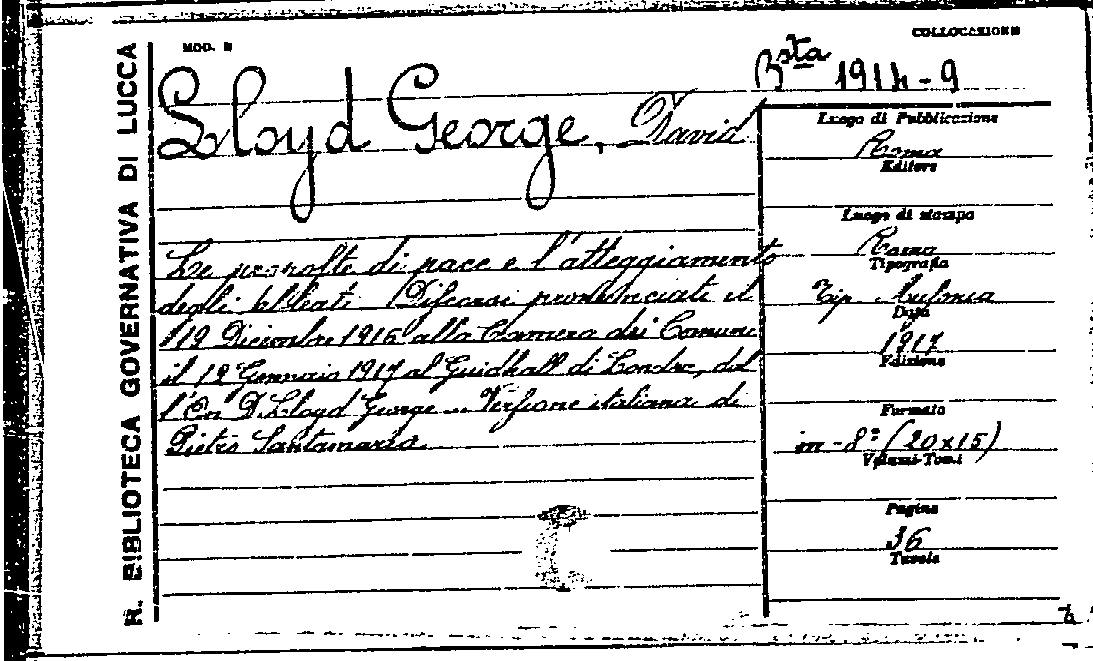 R. BIBLIOTECA GOVERNATIVA DI LUCCA
MOD. B
COLLOCAZIONE
Bsta 1914-9
Lloyd George, David
Le proposte di pace e l'atteggiamento
degli Alleati. Discorsi pronunciati il
19 Dicembre 1916 alla Camera dei Comuni
il 12 Gennaio 1917 al Guidhall di Londra, dal
l'On D. Lloyd George ... Versione italiana di
Pietro Santamaria
Luogo di Pubblicazione
Roma
Editore
Luogo di stampa
Roma
Tipografia
Tip. Ausonia
Data
1917
Edizione
Formato
in-8° (20x15)
Volumi-Tomi
Pagine
36
Tavole